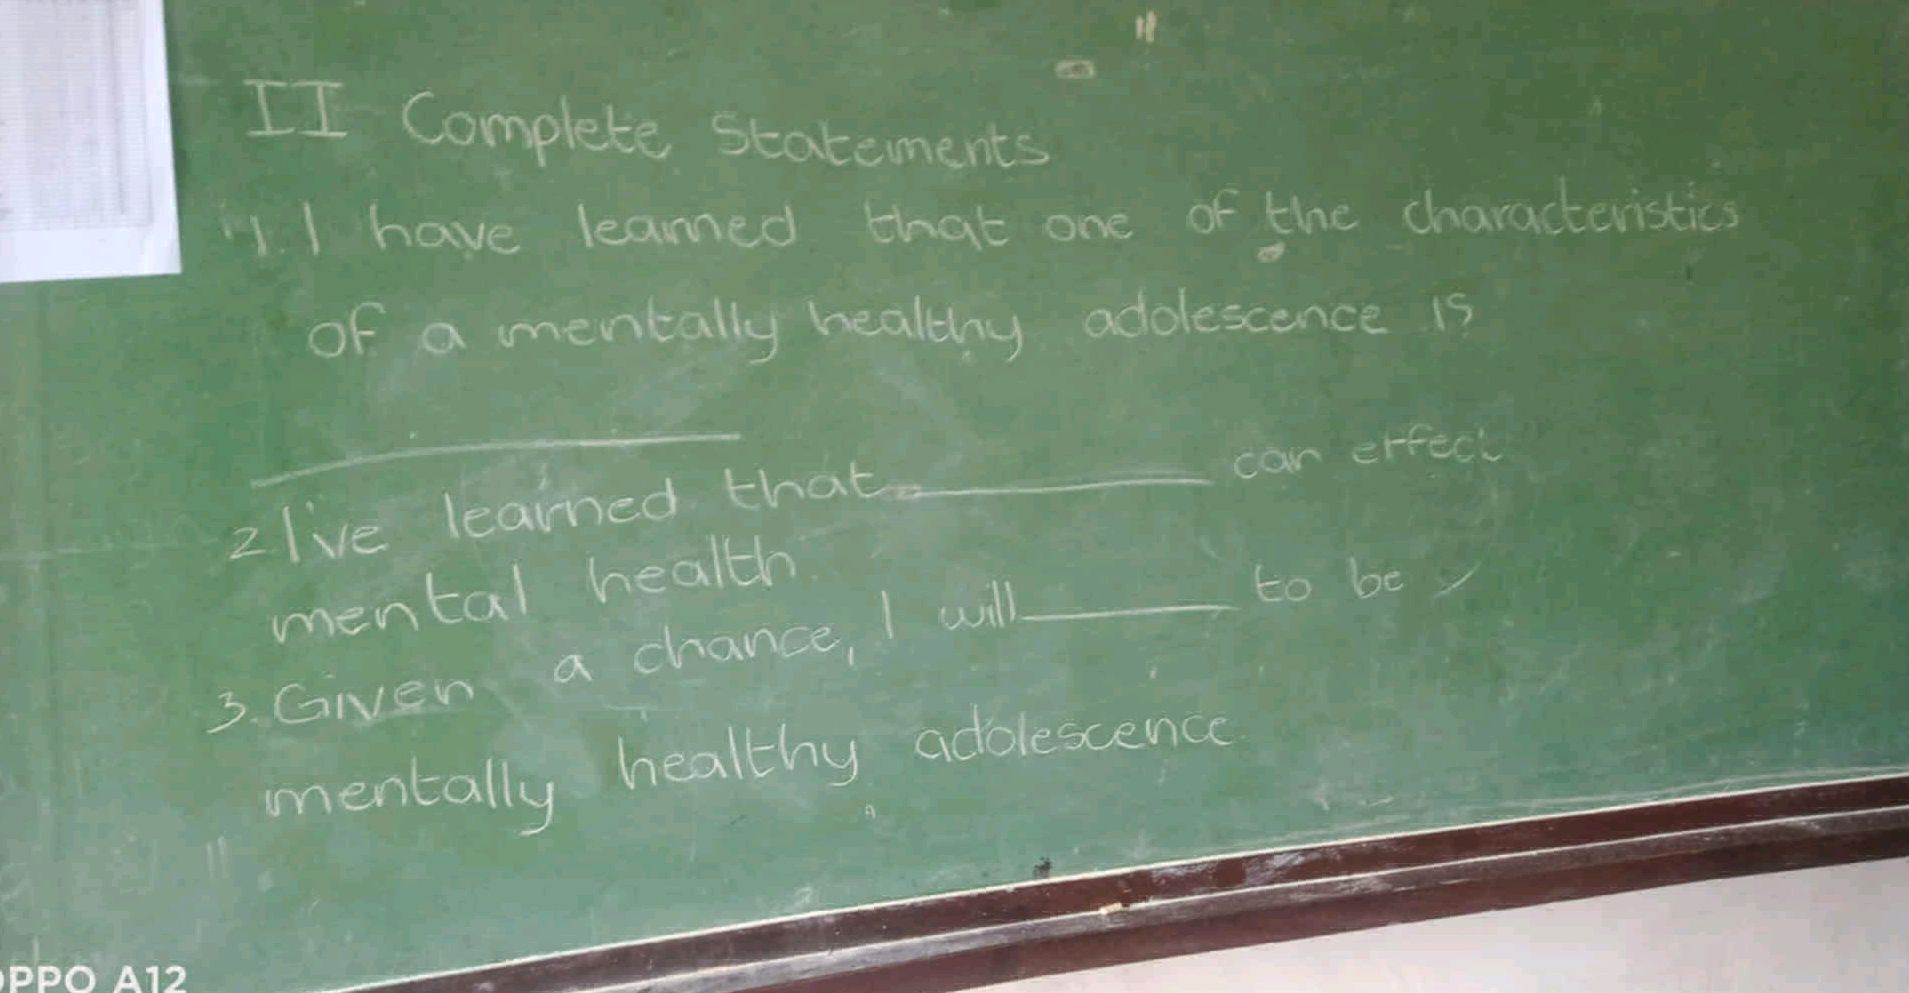 II Complete Statements
1. I have learned that one of the characteristics
of a mentally healthy adolescence is
2 I've learned that can effect
mental health
3. Given a chance, I will to be
mentally healthy adolescence.
OPPO A12